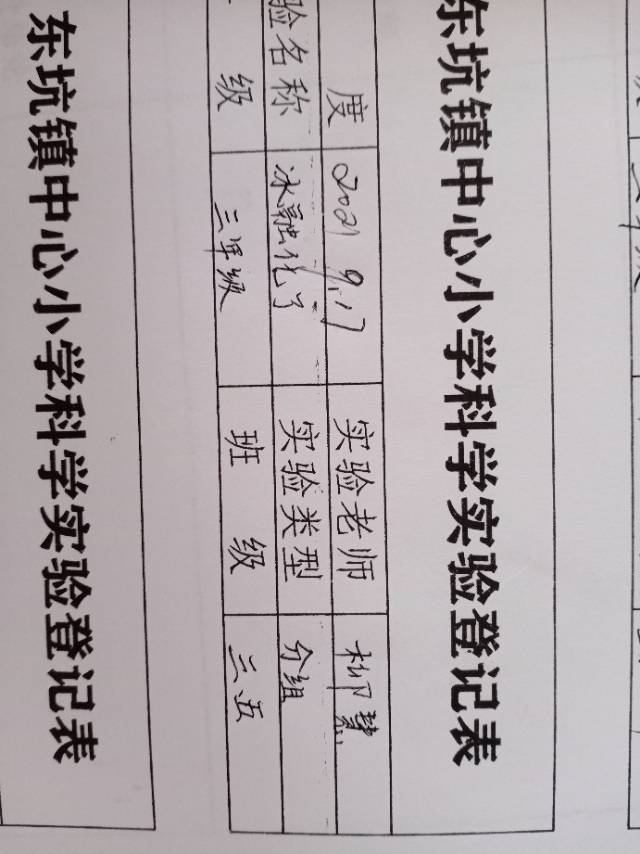 东坑镇中心小学科学实验登记表
度 2021 9.17 实验老师 柳慧
验名称 冰融化了 实验类型 分组
级 三年级 班级 三五
东坑镇中心小学科学实验登记表